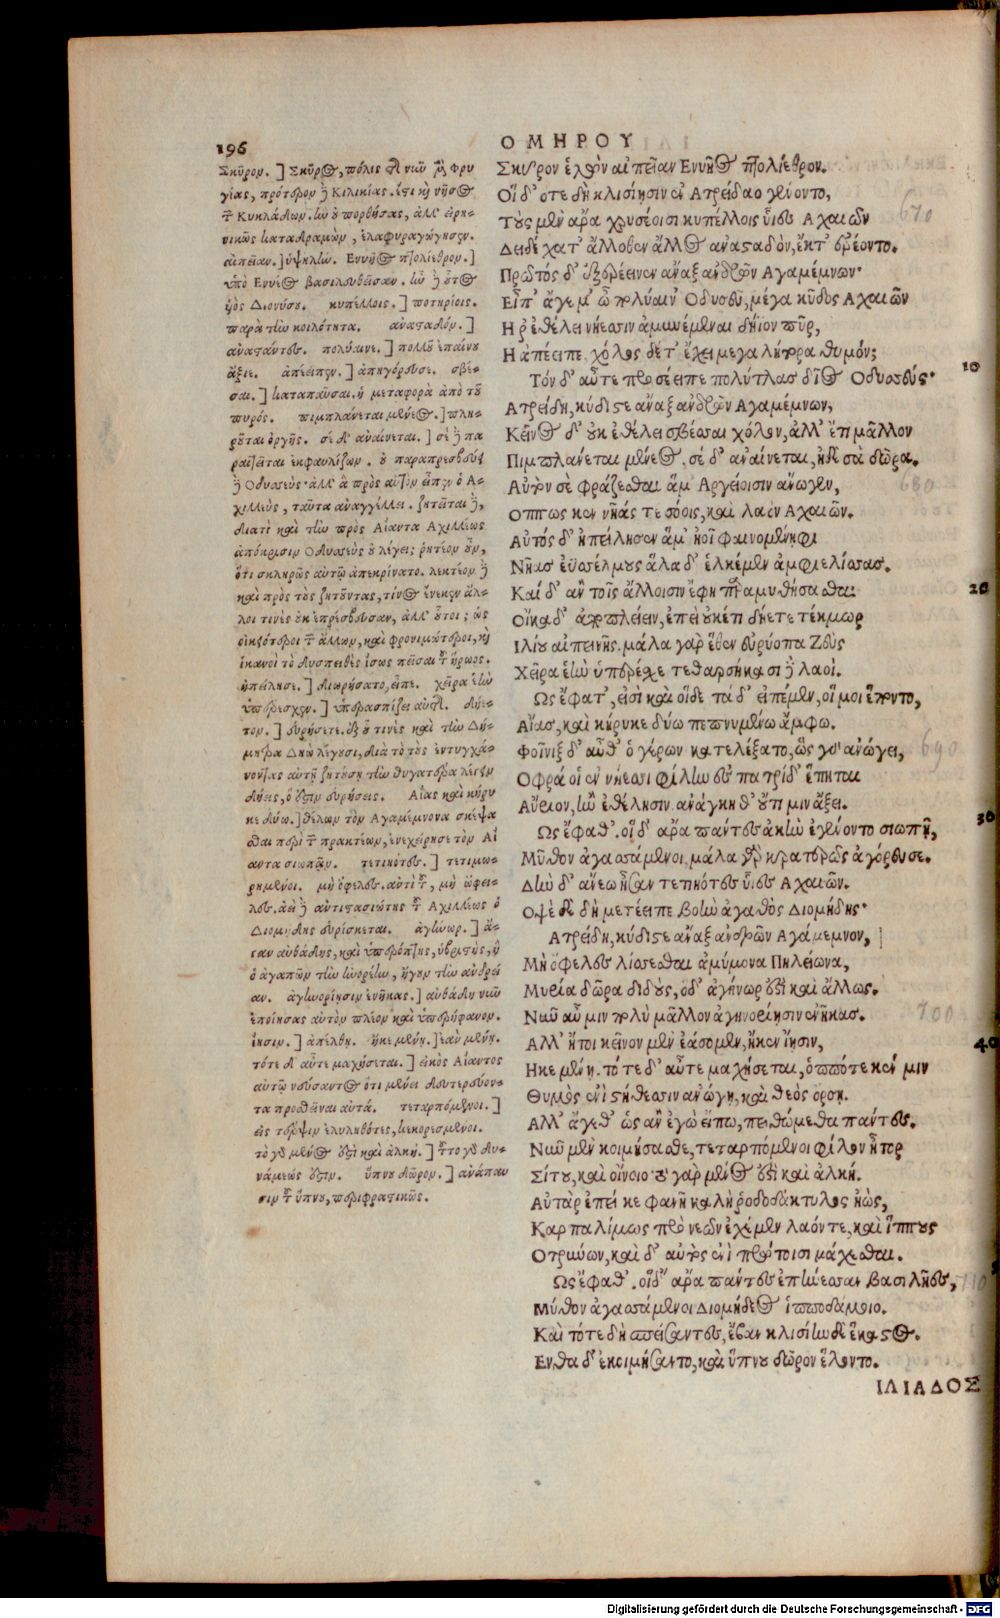 196
ΟΜΗΡΟΥ
Σκῦρον. ] Σκῦρος, πόλις τῆς νῦν μὲν Φρυ
γίας, πρότερον δὲ Κιλικίας. ἔτι καὶ νῆσος
τῶν Κυκλάδων. ἣν οὐ πορθήσας, ἀλλ' εἰρη-
νικῶς καταδραμὼν, ἐλαφυραγώγησεν.
αἰπεῖαν. ] ὑψηλήν. Ἐνυῆος πτολίεθρον. ]
ὑπὸ Ἐνυέως βασιλευθεῖσαν. ἦν δὲ οὗτος
υἱὸς Διονύσου. κυπέλλοις. ] ποτηρίοις.
παρὰ τὴν κοιλότητα. ἀναςαδόν. ]
ἀναςάντες. πολύαινε. ] πολλοῦ ἐπαίνου
ἄξιε. ἀπέειπεν. ] ἀπηγόρευσε. σβέσ-
σαι. ] καταπαῦσαι. ἡ μεταφορὰ ἀπὸ τοῦ
πυρός. πιμπλάνεται μένεος. ] πλη-
ροῦται ὀργῆς. σὲ δ' ἀναίνεται. ] σὲ δὲ πα
ραιτεῖται ἐκφαυλίζων. οὐ παραπρεσβεύει
δὲ Ὀδυσσεύς· ἀλλ' ἃ πρὸς αὐτὸν εἶπεν ὁ Α-
χιλλεὺς, ταῦτα ἀναγγέλλει. ζητεῖται δὲ,
διατί καὶ τὴν πρὸς Αἴαντα Ἀχιλλέως
ἀπόκρισιν Ὀδυσσεὺς οὐ λέγει; ῥητέον οὖν,
ὅτι σκληρῶς αὐτῷ ἀπεκρίνατο. λεκτέον δὲ
καὶ πρὸς τοὺς ζητοῦντας, τίνος ἕνεκεν ἄλ-
λοι τινὲς οὐκ ἐπρέσβευσαν, ἀλλ' οὗτοι; ὡς
οἰκειότεροι τῶν ἄλλων, καὶ φρονιμώτεροι, καὶ
ἱκανοὶ τὸ δυσπειθὲς ἴσως πεῖσαι τοῦ ἥρωος.
ἠπείλησε. ] διωρίσατο, εἶπε. χεῖρα ἑὴν
ὑπερέσχεν. ] ὑπερασπίζει αὐτῆς. δήε-
τον. ] εὑρήσετε. ἐξ οὗ τινὲς καὶ τὴν Δή-
μητρα Δηὼ λέγουσι, διὰ τὸ τοὺς ἐντυγχά-
νοντας αὐτῇ ζητούσῃ τὴν θυγατέρα λέγειν
δήεις, ὅ ἐστιν εὑρήσεις. Αἴας καὶ κήρυ
κε δύω. ] θέλων τὸν Ἀγαμέμνονα σκέψα
σθαι περὶ τῶν πρακτέων, ἐνεχείρησε τὸν Αἴ
αντα σιωπῶν. τετιηότες. ] τετιμω-
ρημένοι. μὴ ὄφελες. ἀντὶ τοῦ, μὴ ὤφει-
λες. ἀεὶ δὲ ἀντιςασιώτης τοῦ Ἀχιλλέως ὁ
Διομήδης εὑρίσκεται. ἀγήνωρ. ] ἄ-
γαν αὐθάδης, καὶ ὑπερόπτης, ὑβριςὴς, ἢ
ὁ ἀγαπῶν τὴν ἠνορέην, ἤγουν τὴν ἀνδρεί
αν. ἀγηνορίῃσιν ἐνῆκας. ] αὐθάδη νῦν
ἐποίησας αὐτὸν πλέον καὶ ὑπερήφανον.
ἴῃσιν. ] ἀπέλθῃ. ἤκε μένῃ. ] ἐὰν μένῃ.
τότε δ' αὖτε μαχήσεται. ] εἰκὸς Αἴαντος
αὐτῷ νεύσαντος ὅτι μένει δευτερεύον-
τα προθεῖναι αὐτά. τεταρπόμενοι. ]
εἰς τέρψιν ἐληλυθότες, κεκορεσμένοι.
τὸ γὰρ μένος ἐςὶ καὶ ἀλκή. ] τοῦτο γὰρ δυ-
νάμεώς ἐςιν. ὕπνου δῶρον. ] ἀνάπαυ
σιν τοῦ ὕπνου, περιφραςικῶς.
Σκῦρον ἑλὼν αἰπεῖαν Ἐνυῆος πτολίεθρον.
Οἱ δ' ὅτε δὴ κλισίῃσιν ἐν Ἀτρείδαο γένοντο,
Τοὺς μὲν ἄρα χρυσέοισι κυπέλλοις ὗιες Ἀχαιῶν
Δειδέχατ' ἄλλοθεν ἄλλος ἀναςαδὸν, ἔκ τ' ἐρέοντο.
Πρῶτος δ' ἐξερέεινεν ἄναξ ἀνδρῶν Ἀγαμέμνων·
Εἴπ' ἄγε μ' ὦ πολύαιν' Ὀδυσεῦ, μέγα κῦδος Ἀχαιῶν
Ἤ ῥ' ἐθέλει νήεσσιν ἀμυνέμεναι δήϊον πῦρ,
Ἢ ἀπέειπε, χόλος δ' ἔτ' ἔχει μεγαλήτορα θυμόν;
10
Τὸν δ' αὖτε προσέειπε πολύτλας δῖος Ὀδυσσεύς·
Ἀτρείδη, κύδιςε ἄναξ ἀνδρῶν Ἀγαμέμνων,
Κεῖνος δ' οὐκ ἐθέλει σβέσσαι χόλον, ἀλλ' ἔτι μᾶλλον
Πιμπλάνεται μένεος. σὲ δ' ἀναίνεται, ἠδὲ σὰ δῶρα.
Αὐτόν σε φράζεσθαι ἅμ' Ἀργείοισιν ἄνωγεν,
Ὅππως κεν νῆάς τε σόοις, καὶ λαὸν Ἀχαιῶν.
Αὐτὸς δ' ἠπείλησεν ἅμ' ἠοῖ φαινομένηφι
Νῆας ἐϋσσέλμους ἅλαδ' ἑλκέμεν ἀμφιελίσσας.
20
Καὶ δ' ἂν τοῖς ἄλλοισιν ἔφη παραμυθήσασθαι
Οἴκαδ' ἀποπλείειν, ἐπεὶ οὐκέτι δήετε τέκμωρ
Ἰλίου αἰπεινῆς. μάλα γάρ ἑθεν εὐρύοπα Ζεὺς
Χεῖρα ἑὴν ὑπερέσχε τεθαρσήκασι δὲ λαοί.
Ὣς ἔφατ', εἰσὶ καὶ οἵδε τάδ' εἰπέμεν, οἵ μοι ἕποντο,
Αἴας, καὶ κήρυκε δύω πεπνυμένω ἄμφω.
Φοῖνιξ δ' αὖθ' ὁ γέρων κατελέξατο, ὣς γὰρ ἀνώγει,
Ὄφρά οἱ ἐν νήεσσι φίλην ἐς πατρίδ' ἕπηται
Αὔριον, ἢν ἐθέλησιν. ἀνάγκῃ δ' οὔτι μιν ἄξει.
30
Ὣς ἔφαθ'. οἱ δ' ἄρα πάντες ἀκὴν ἐγένοντο σιωπῇ,
Μῦθον ἀγασσάμενοι, μάλα γὰρ κρατερῶς ἀγόρευσε.
Δὴν δ' ἄνεω ἦσαν τετιηότες ὗιες Ἀχαιῶν.
Ὀψὲ δὲ δὴ μετέειπε βοὴν ἀγαθὸς Διομήδης·
Ἀτρείδη, κύδιςε ἄναξ ἀνδρῶν Ἀγάμεμνον,
Μὴ ὄφελες λίσσεσθαι ἀμύμονα Πηλείωνα,
Μυρία δῶρα διδοὺς, ὁ δ' ἀγήνωρ ἐςὶ καὶ ἄλλως.
Νῦν αὖ μιν πολὺ μᾶλλον ἀγηνορίῃσιν ἐνῆκας.
40
Ἀλλ' ἤτοι κεῖνον μὲν ἐάσομεν, ἤ κεν ἴῃσιν,
Ἤ κε μένῃ. τότε δ' αὖτε μαχήσεται, ὁππότε κέν μιν
Θυμὸς ἐνὶ ςήθεσσιν ἀνώγῃ, καὶ θεὸς ὄρσῃ.
Ἀλλ' ἄγεθ' ὡς ἂν ἐγὼ εἴπω, πειθώμεθα πάντες.
Νῦν μὲν κοιμήσασθε, τεταρπόμενοι φίλον ἦτορ
Σίτου, καὶ οἴνοιο· τὸ γὰρ μένος ἐςὶ καὶ ἀλκή.
Αὐτὰρ ἐπεί κε φανῇ καλὴ ῥοδοδάκτυλος ἠὼς,
Καρπαλίμως πρὸ νεῶν ἐχέμεν λαόν τε, καὶ ἵππους
Ὀτρύνων, καὶ δ' αὐτὸς ἐνὶ πρώτοισι μάχεσθαι.
Ὣς ἔφαθ'. οἱ δ' ἄρα πάντες ἐπῄνεσαν βασιλῆες,
Μύθον ἀγασσάμενοι Διομήδεος ἱπποδάμοιο.
Καὶ τότε δὴ σπείσαντες, ἔβαν κλισίηνδε ἕκαςος.
Ἔνθα δ' ἐκοιμήσαντο, καὶ ὕπνου δῶρον ἕλοντο.
ΙΛΙΑΔΟΣ
670
680
690
700
710
Digitalisierung gefördert durch die Deutsche Forschungsgemeinschaft - DFG